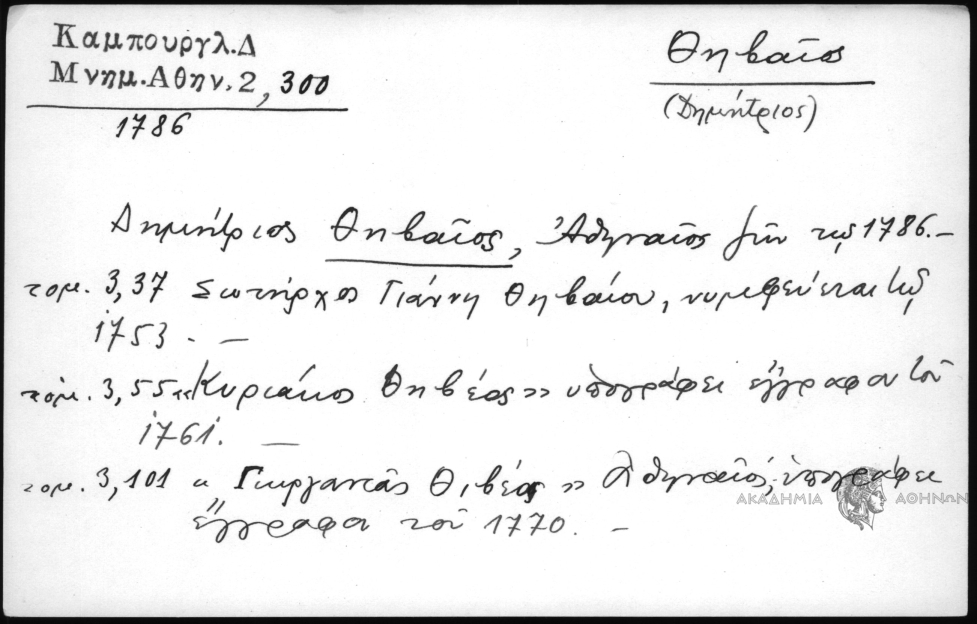 Καμπουργλ.Δ
Μνημ.Αθην.2, 300
1786
Θηβαῖος
(Δημήτριος)
Δημήτριος Θηβαῖος, Ἀθηναῖος ζῶν τῷ 1786.—
τομ. 3,37 Σωτήρχος Γιάννη Θηβαίου, νυμφεύεται τῷ
1753. —
τόμ. 3,55 «Κυριάκος Θηβέος» υπογράφει ἔγγραφον τοῦ
1761. —
τομ. 3,101 «Γιωργαντᾶς Θιβέος» Ἀθηναῖος, ὑπογράφει
ἔγγραφον τοῦ 1770. —
ΑΚΑΔΗΜΙΑ ΑΘΗΝΩΝ